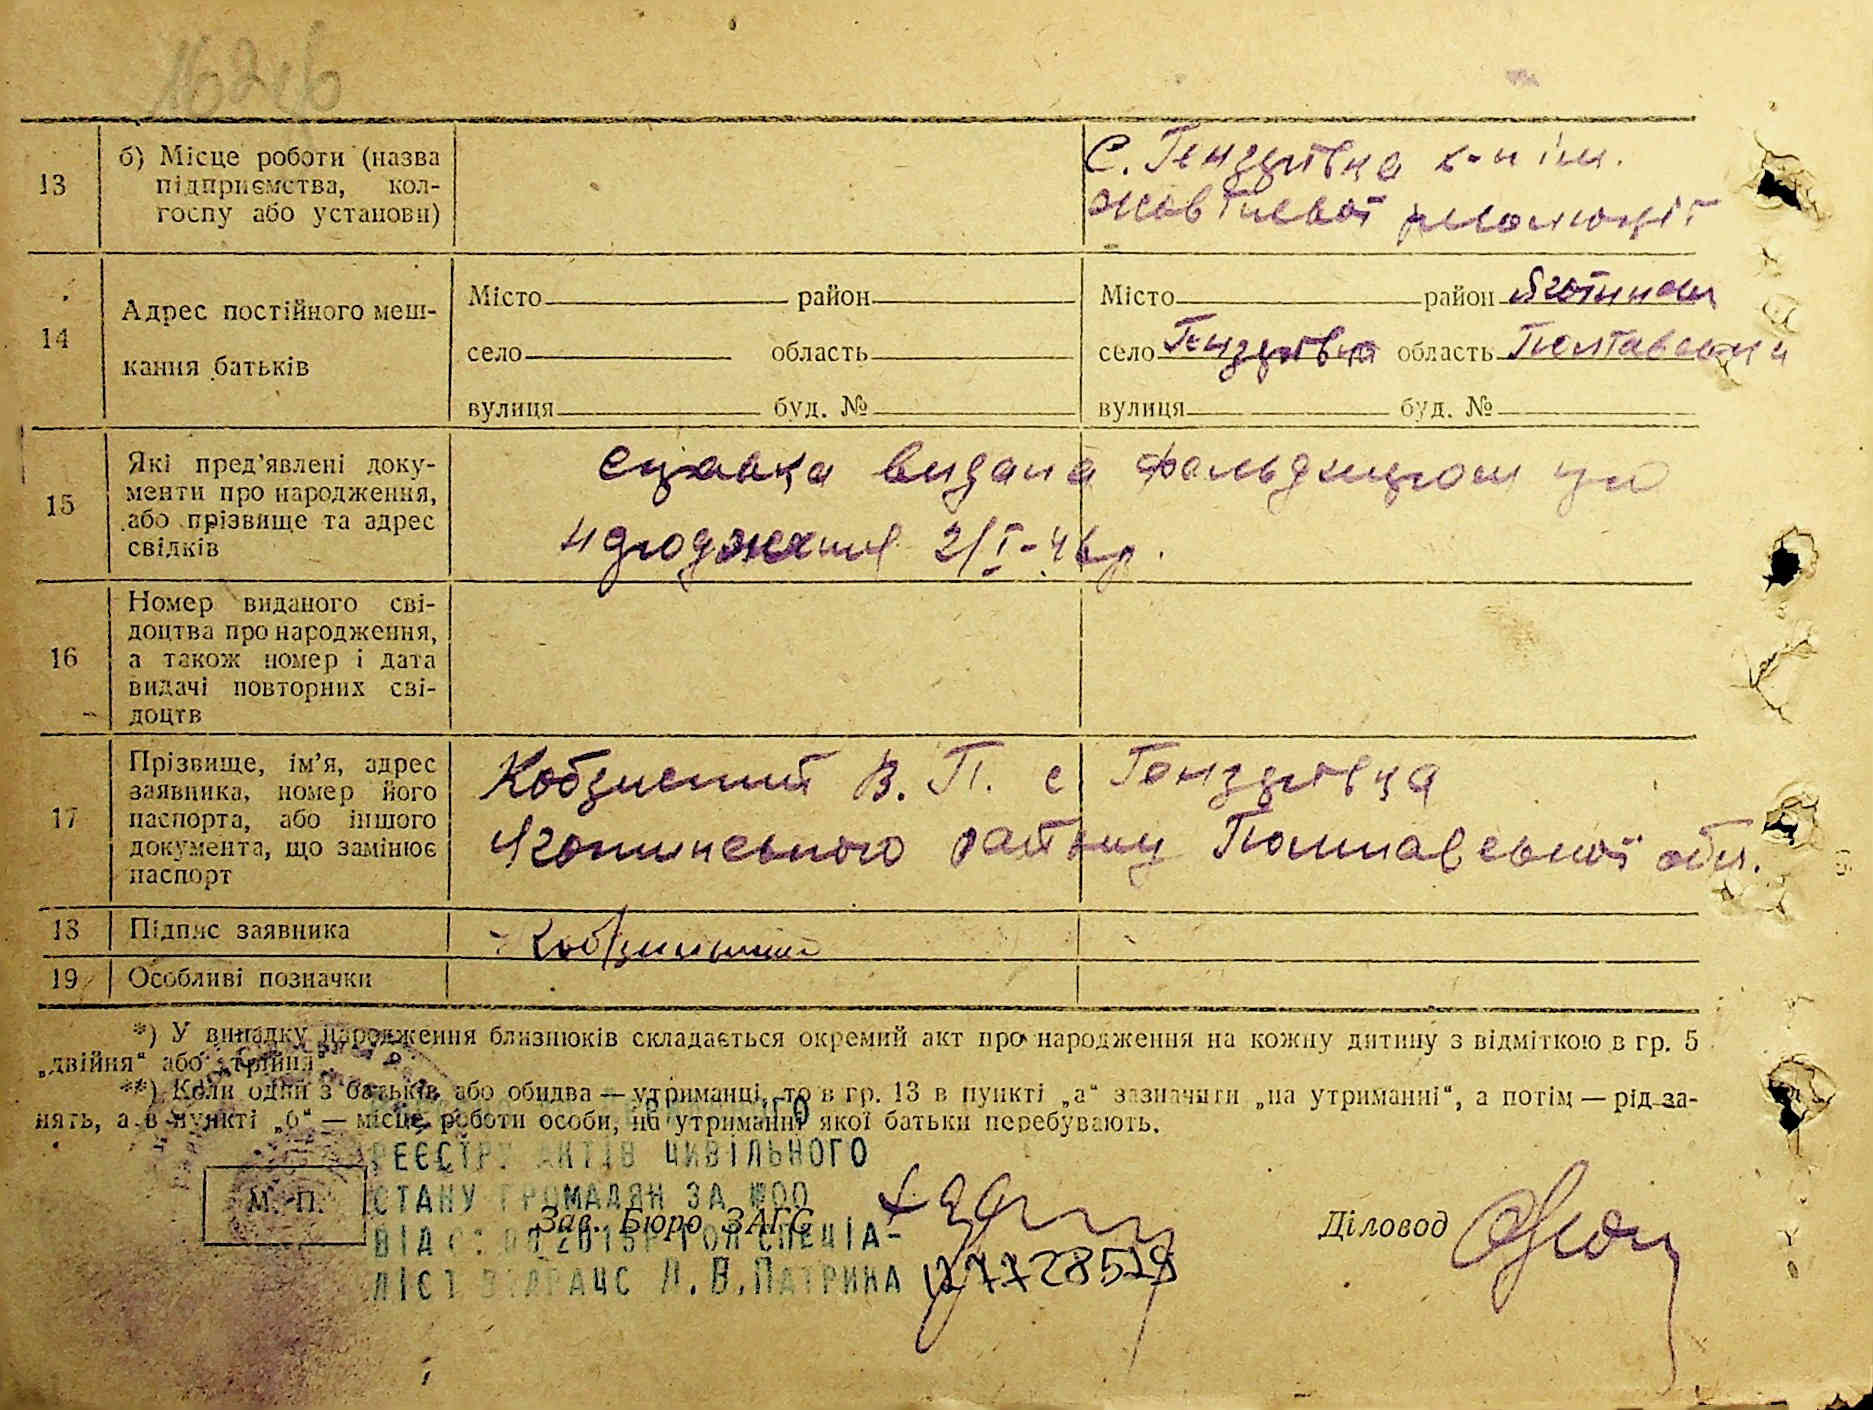 13
б) Місце роботи (назва
підприємства, кол-
госпу або установи)
С. Гензерівка к-п ім.
жовтневої революції
14
Адрес постійного меш-
кання батьків
Місто район
село область
вулиця буд. №
Місто район Яготинськ
село Гензерівка область Полтавська
вулиця буд. №
15
Які пред'явлені доку-
менти про народження,
або прізвище та адрес
свідків
справка видана фельдшером про
народження 2/I-46р.
16
Номер виданого сві-
доцтва про народження,
а також номер і дата
видачі повторних сві-
доцтв
17
Прізвище, ім'я, адрес
заявника, номер його
паспорта, або іншого
документа, що замінює
паспорт
В. П. с Гензерівка
Яготинського району Полтавської обл.
18
Підпис заявника
19
Особливі позначки
*) У випадку народження близнюків складається окремий акт про народження на кожну дитину з відміткою в гр. 5
„двійня“ або „трійня“.
**) Коли один з батьків або обидва — утриманці, то в гр. 13 в пункті „а“ зазначити „на утриманні“, а потім — рід за-
нять, а в пункті „б“ — місце роботи особи, на утриманні якої батьки перебувають.
РЕЄСТРУ АКТІВ ЦИВІЛЬНОГО
СТАНУ ГРОМАДЯН ЗА
М. П.
Зав. Бюро ЗАГС
Діловод
ВІД СПЕЦІА-
ЛІСТ ВІДРАЦС Л.В.ПАТРИНА